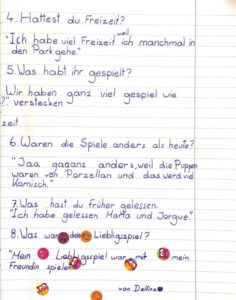 4. Hattest du Freizeit?
"Ich habe viel Freizeit weil ich manchmal in
den Park gehe."
5. Was habt ihr gespielt?
Wir haben ganz viel gespiel wie
?" verstecken
zeit
6. Waren die Spiele anders als heute?
"Jaa gaganz anders, weil die Puppen
waren von Porzellan und das
Komisch."
7. Was hast du früher gelessen.
"Ich habe gelessen und Jorgue."
8. Was war dein Liebligsspiel?
"Mein Liebligspiel war mit mein
Freundin spielen
von Delina